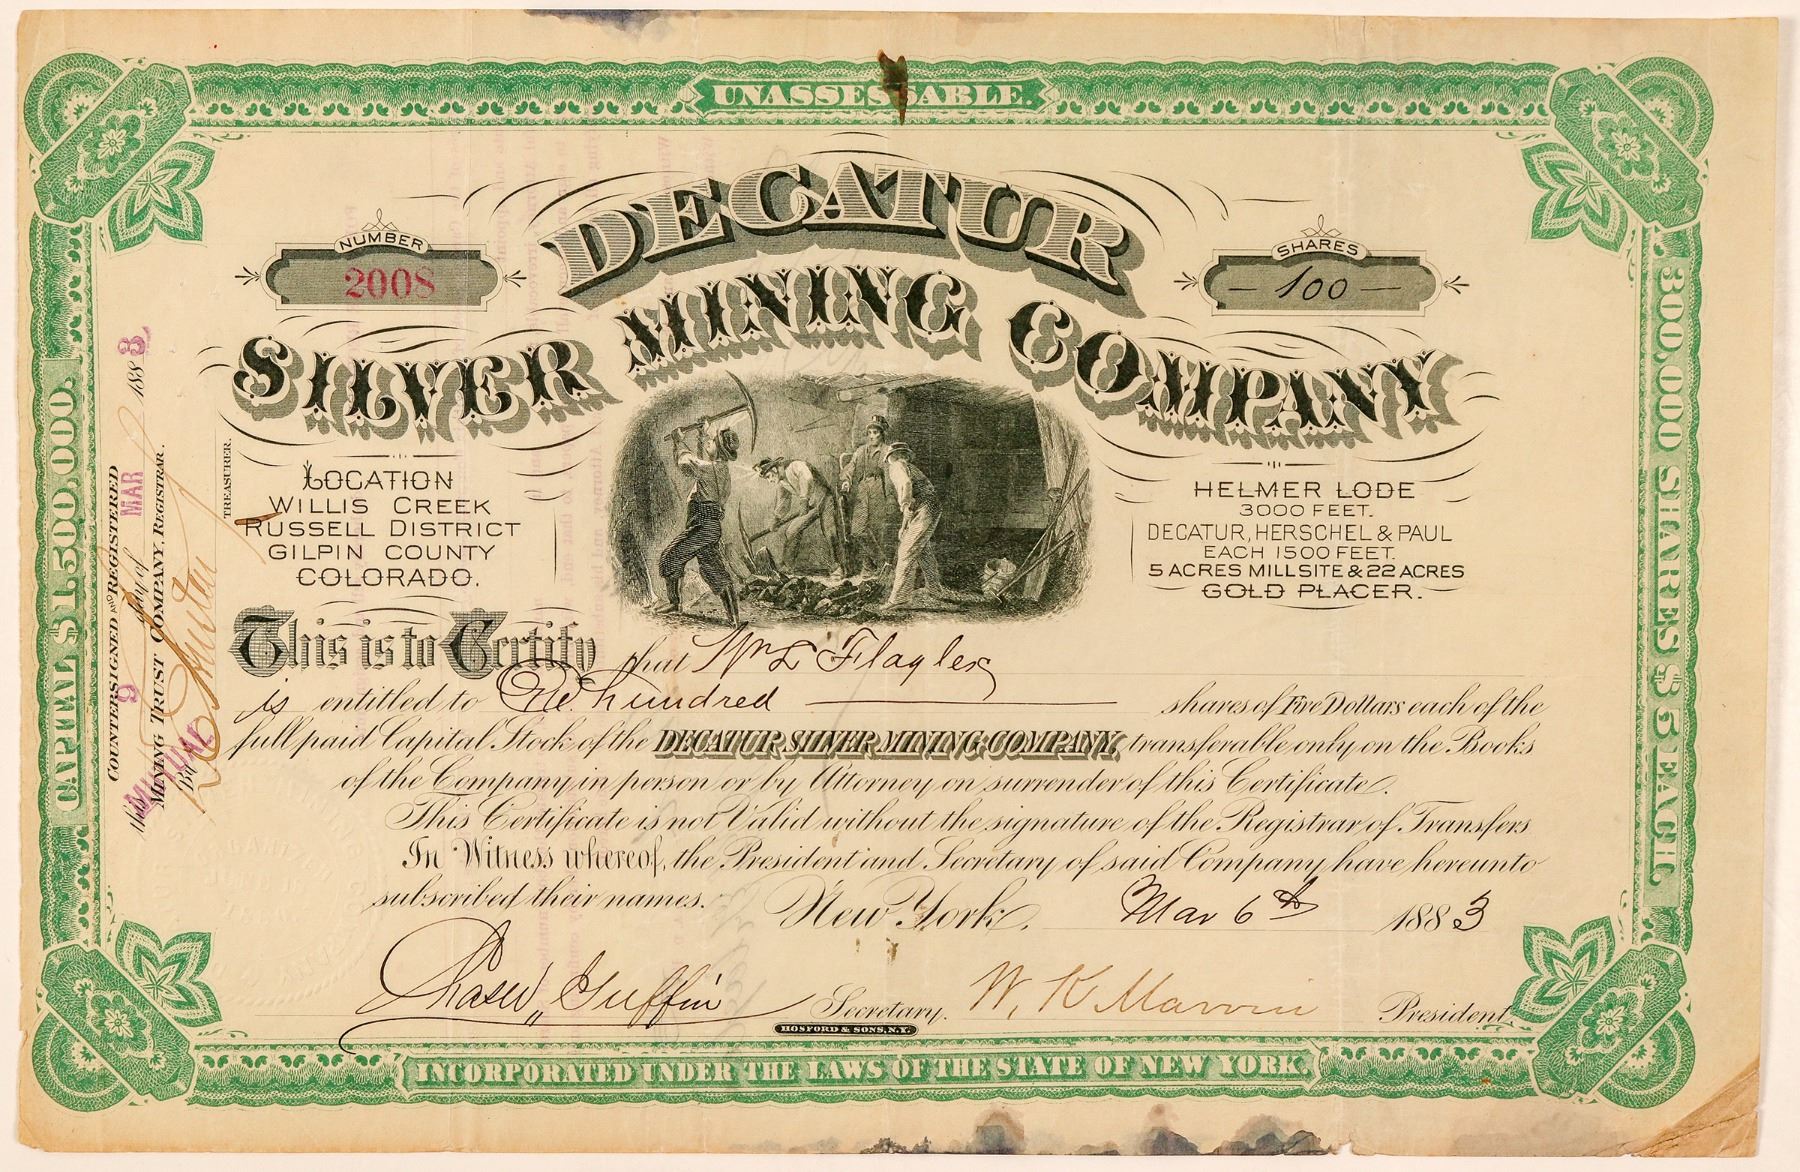 UNASSESSABLE.
DECATUR
SILVER MINING COMPANY
NUMBER
2008
SHARES
— 100 —
LOCATION
WILLIS CREEK
RUSSELL DISTRICT
GILPIN COUNTY
COLORADO.
HELMER LODE
3000 FEET.
DECATUR, HERSCHEL & PAUL
EACH 1500 FEET.
5 ACRES MILLSITE & 22 ACRES
GOLD PLACER.
This is to Certify that Wm L Flagler
is entitled to One hundred shares of Five Dollars each of the
full paid Capital Stock of the DECATUR SILVER MINING COMPANY, transferable only on the Books
of the Company in person or by Attorney on surrender of this Certificate.
This Certificate is not Valid without the signature of the Registrar of Transfers
In Witness whereof, the President and Secretary of said Company have hereunto
subscribed their names. New York, Mar 6th 1883
Secretary. W. K Marvin President
HOSFORD & SONS, N.Y.
INCORPORATED UNDER THE LAWS OF THE STATE OF NEW YORK.
CAPITAL $1,500,000.
300,000 SHARES $5 EACH.
COUNTERSIGNED AND REGISTERED
this 9 day of MAR 1883
MUTUAL
MINING TRUST COMPANY, REGISTRAR.
By
TREASURER.